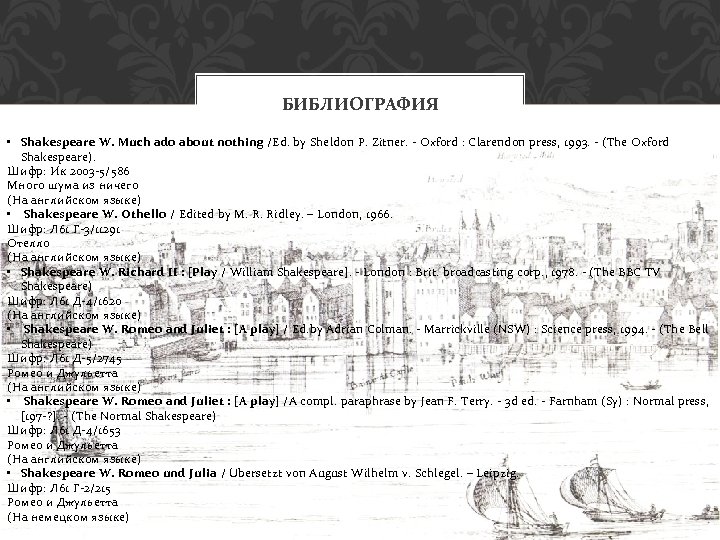 БИБЛИОГРАФИЯ
• Shakespeare W. Much ado about nothing /Ed. by Sheldon P. Zitner. - Oxford : Clarendon press, 1993. - (The Oxford
Shakespeare).
Шифр: Ик 2003-5/586
Много шума из ничего
(На английском языке)
• Shakespeare W. Othello / Edited by M. R. Ridley. – London, 1966.
Шифр: Л61 Г-3/11291
Отелло
(На английском языке)
• Shakespeare W. Richard II : [Play / William Shakespeare]. - London : Brit. broadcasting corp., 1978. - (The BBC TV
Shakespeare)
Шифр: Л61 Д-4/1620
(На английском языке)
• Shakespeare W. Romeo and Juliet : [A play] / Ed by Adrian Colman. - Marrickville (NSW) : Science press, 1994. - (The Bell
Shakespeare)
Шифр: Л61 Д-5/2745
Ромео и Джульетта
(На английском языке)
• Shakespeare W. Romeo and Juliet : [A play] /A compl. paraphrase by Jean F. Terry. - 3d ed. - Farnham (Sy) : Normal press,
[197-?]. - (The Normal Shakespeare)
Шифр: Л61 Д-4/1653
Ромео и Джульетта
(На английском языке)
• Shakespeare W. Romeo und Julia / Übersetzt von August Wilhelm v. Schlegel. – Leipzig.
Шифр: Л61 Г-2/215
Ромео и Джульетта
(На немецком языке)